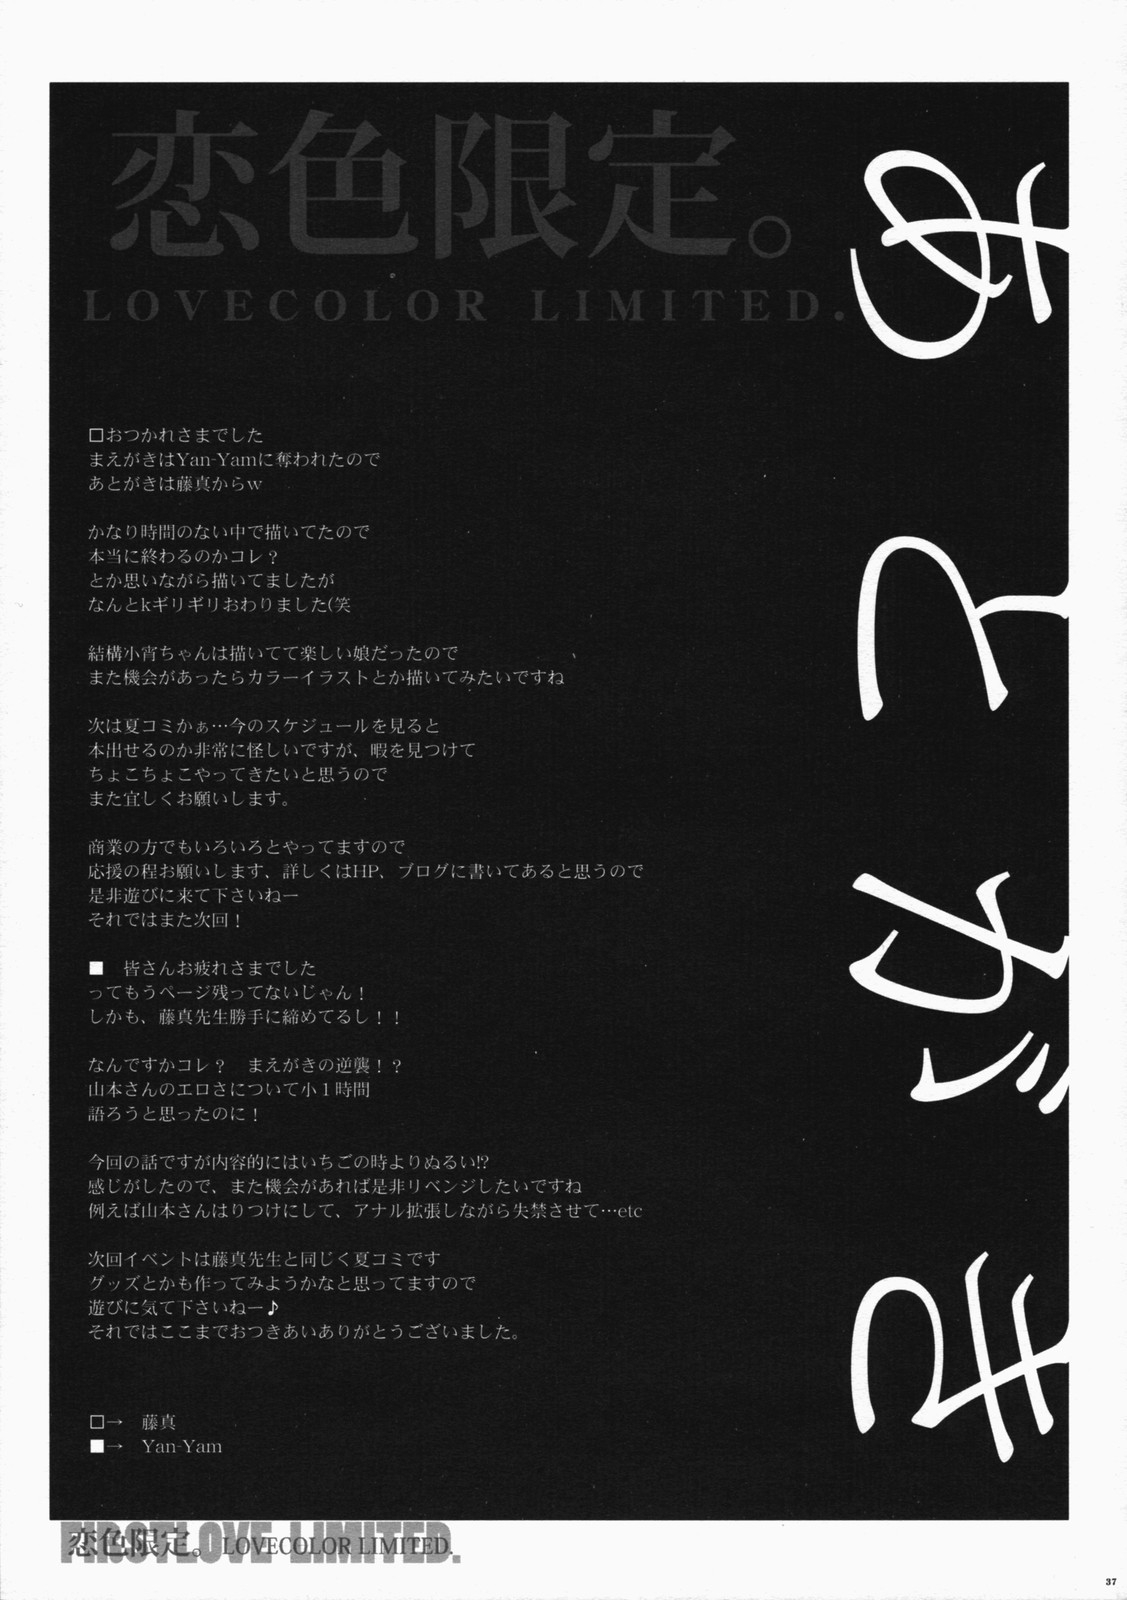 恋色限定。
LOVECOLOR LIMITED.
あとがき
□おつかれさまでした
まえがきはYan-Yamに奪われたので
あとがきは藤真からw
かなり時間のない中で描いてたので
本当に終わるのかコレ？
とか思いながら描いてましたが
なんとkギリギリおわりました(笑
結構小宵ちゃんは描いてて楽しい娘だったので
また機会があったらカラーイラストとか描いてみたいですね
次は夏コミかぁ…今のスケジュールを見ると
本出せるのか非常に怪しいですが、暇を見つけて
ちょこちょこやってきたいと思うので
また宜しくお願いします。
商業の方でもいろいろとやってますので
応援の程お願いします、詳しくはHP、ブログに書いてあると思うので
是非遊びに来て下さいねー
それではまた次回！
■　皆さんお疲れさまでした
ってもうページ残ってないじゃん！
しかも、藤真先生勝手に締めてるし！！
なんですかコレ？　まえがきの逆襲！？
山本さんのエロさについて小１時間
語ろうと思ったのに！
今回の話ですが内容的にはいちごの時よりぬるい!?
感じがしたので、また機会があれば是非リベンジしたいですね
例えば山本さんはりつけにして、アナル拡張しながら失禁させて…etc
次回イベントは藤真先生と同じく夏コミです
グッズとかも作ってみようかなと思ってますので
遊びに気て下さいねー♪
それではここまでおつきあいありがとうございました。
□→　藤真
■→　Yan-Yam
FIRSTLOVE LIMITED.
恋色限定。 LOVECOLOR LIMITED.
37